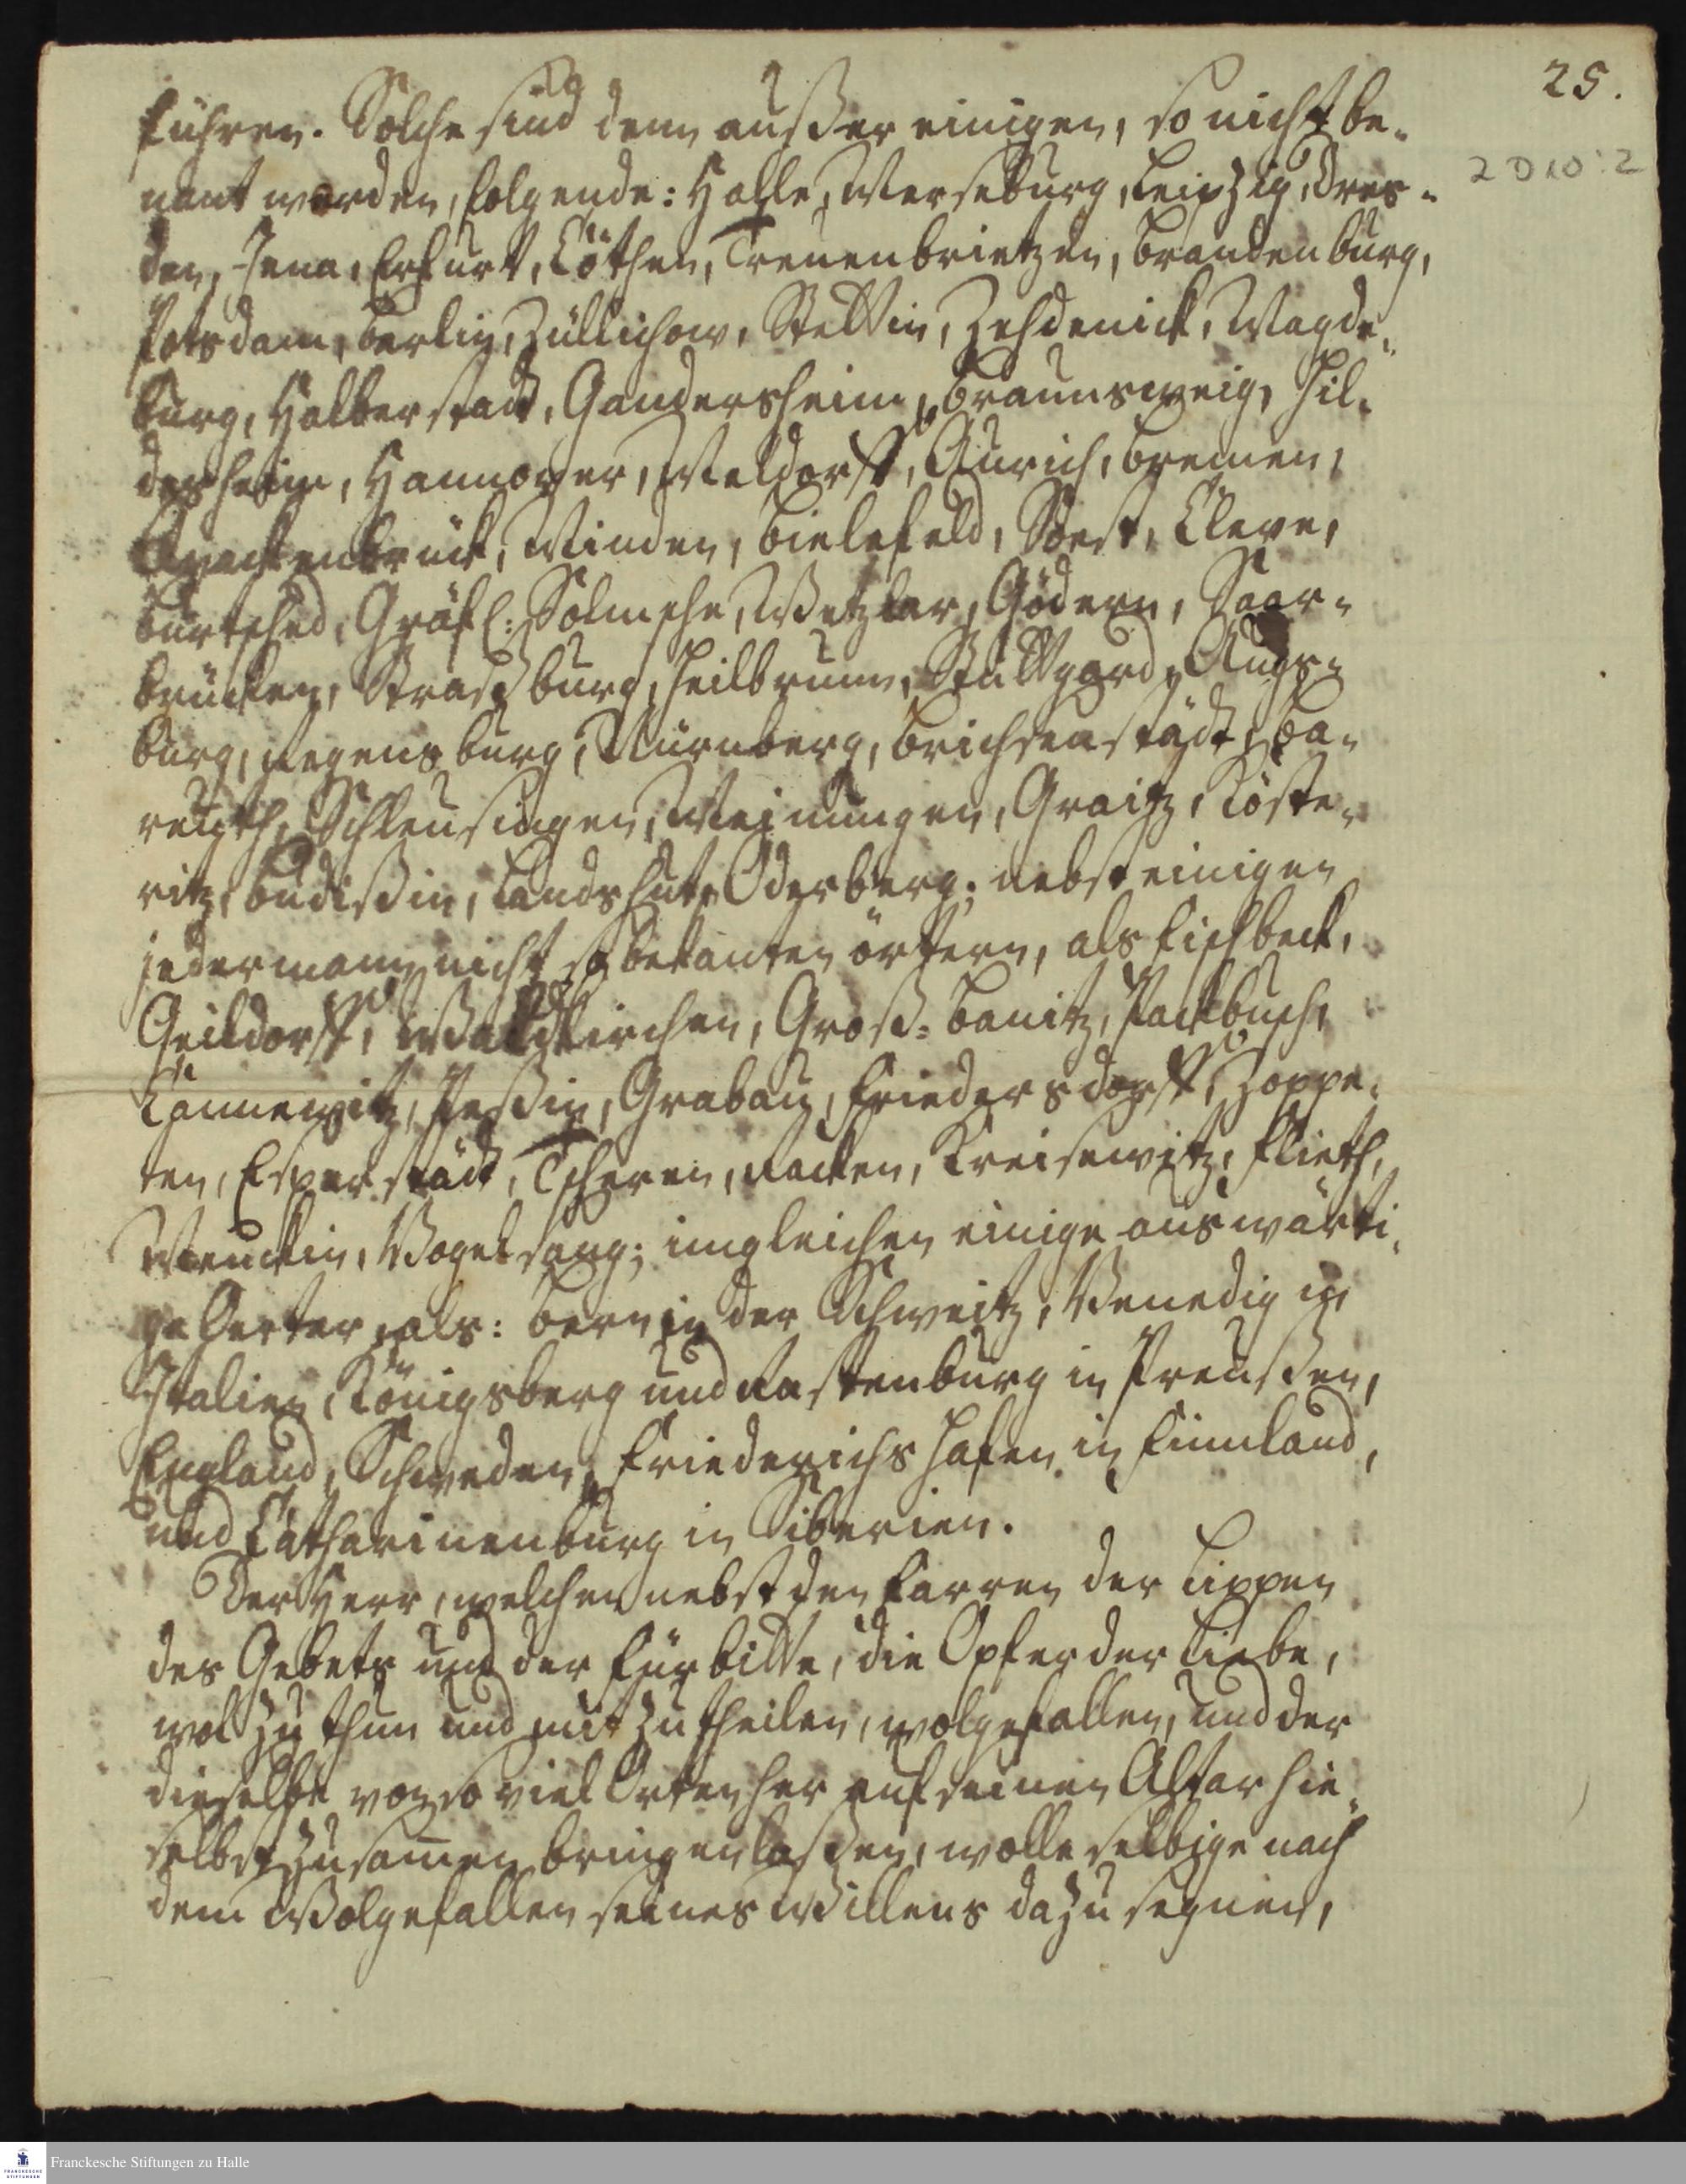 25.
führen. Solche sind denn außer einigen, so nicht be-
2 D 10 : 2
nant worden, folgende: Halle, Merseburg, Leipzig, Dres-
den, Jena, Erfurt, Cöthen, Treuenbrietzen, Brandenburg,
Potsdam, Berlin, Züllichow, Stettin, Zehdenick, Magde-
burg, Halberstadt, Gandersheim, Braunsweig, Hil-
desheim, Hannover, Meldorff, Aurich, Bremen,
Quackenbrück, Minden, Bielefeld, Soest, Cleve,
Burtscheid, Gräfl: Solmsche, Wetzlar, Gödern, Saar-
brücken, Straßburg, Heilbrunn, Stuttgard, Augs-
burg, Regensburg, Nürnberg, Brichsenstädt, Ba-
reuth, Schleusingen, Meinungen, Graitz, Köste-
ritz, Budißin, Landshut, Oderberg; nebst einigen
jedermann nicht so bekanten örtern, als Fischbeck,
Geildorff, Waldkirchen, Groß-Banitz, Packbusch,
Cannewitz, Peßin, Grabau, Friedersdorff, Hoppe-
ten, Esperstädt, Tscheren, Racken, Kreisewitz, Flieth,
Menckin, Vogelsang; imgleichen einige auswärti-
ge Oerter, als: Bern in der Schweitz, Venedig in
Italien, Königsberg und Rastenburg in Preußen,
England, Schweden, Friederichshafen in Finnland,
und Catharinenburg in Siberien.
Der Herr, welchen nebst den Farren der Lippen
des Gebets und der Fürbitte, die Opfer der Liebe,
wol zu thun und mit zu theilen, wolgefallen, und der
dieselbe von so viel Orten her auf seinen Altar hie-
selbst zusammen bringen laßen, wolle selbige nach
dem Wolgefallen seines Willens dazu segnen,
Franckesche Stiftungen zu Halle